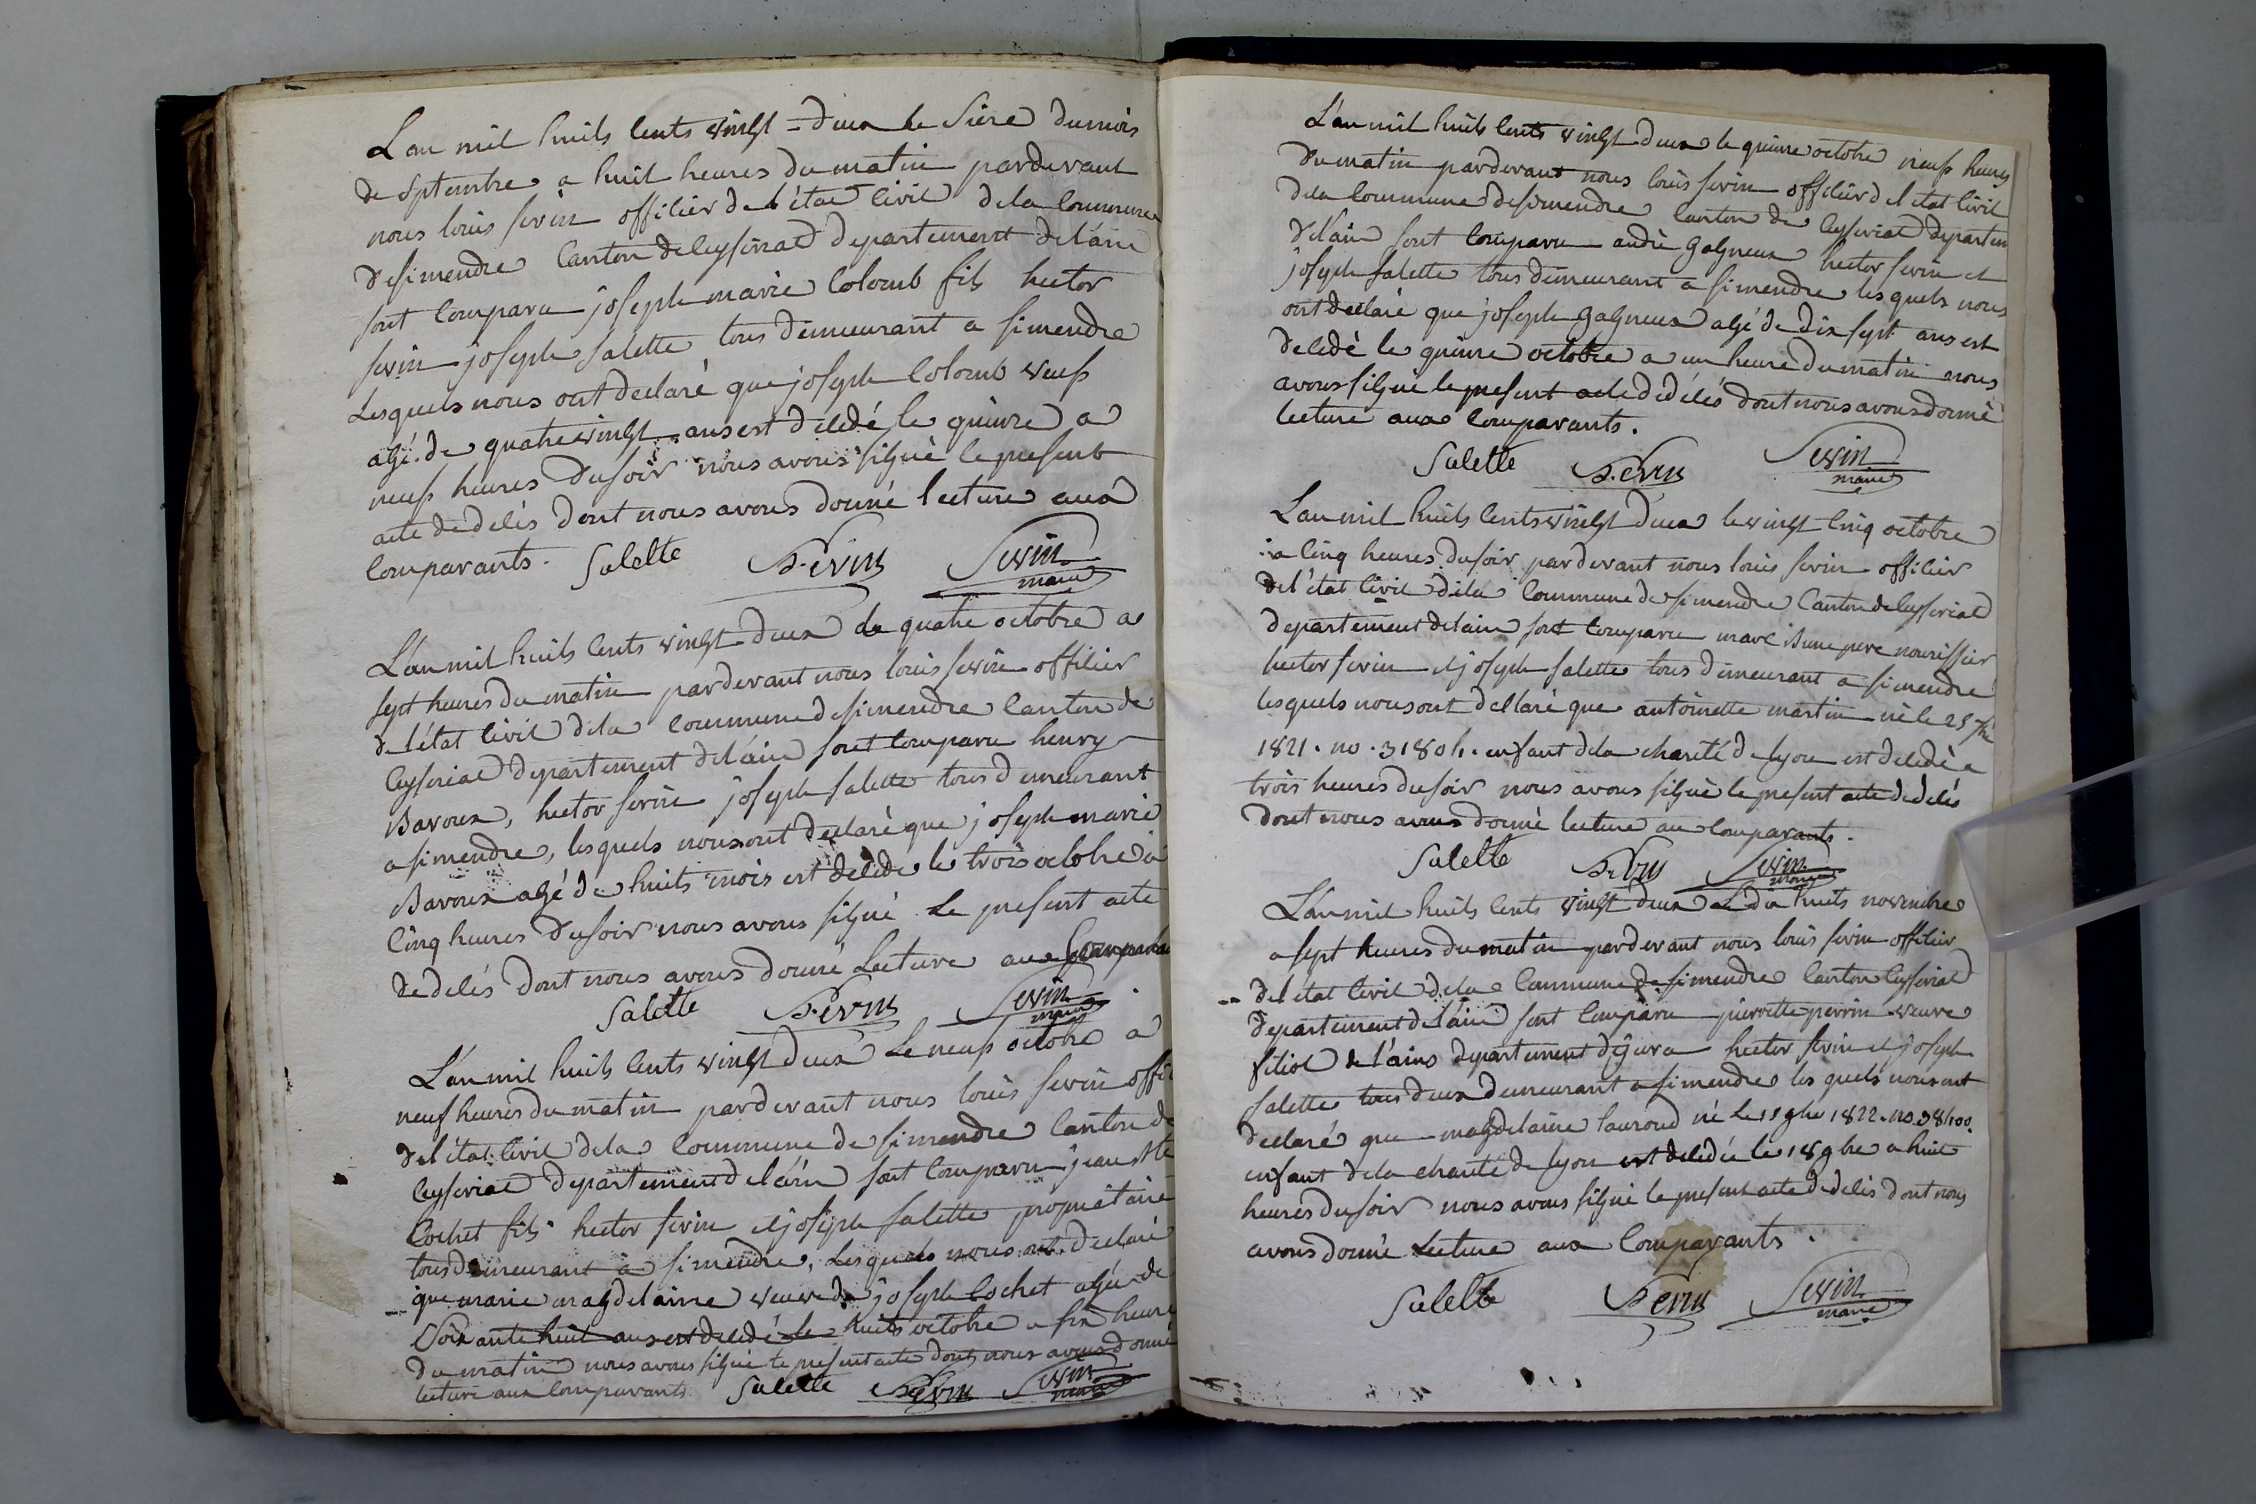 L'an mil huits cents vingt-deux le sieze du mois
de septembre a huit heures du matin pardevant
nous louis sevin officier de l'état civil de la commune
de simendre canton de ceyseriat departement de l'ain
sont comparu joseph marie colomb fils hector
sevin joseph salette tous demeurant a simendre
Lesquels nous ont declaré que joseph colomb veuf
agé de quatre vingt ans est décédé le quinze a
neuf heures du soir nous avons signé le present
acte de decés dont nous avons donné lecture aux
comparants. Salette Sevin Sevin
maire
L'an mil huits cents vingt-deux le quatre octobre a
sept heures du matin pardevant nous louis sevin officier
de l'état civil de la commune de simendre canton de
ceyseriat departement de l'ain sont comparu henry
Bavoux, hector sevin joseph salette tous demeurant
a simendre, lesquels nous ont declaré que joseph marie
Bavoux agé de huits mois est decede le trois octobre a
cinq heures du soir nous avons signé le present acte
de decés dont nous avons donné Lecture aux
Salette Sevin Sevin
maire
L'an mil huits cents vingt deux Le neuf octobre a
neuf heures du matin pardevant nous louis sevin offi
de l'état civil de la commune de simendre canton de
ceyseriat departement de l'ain sont comparu jean
Cochet fils hector sevin et joseph salette proprietaire
tous demeurant a simendre, Lesquels nous ont declaré
que marie magdelaine veuve de joseph Cochet agée de
soixante huit ans est decedé le huits octobre a six heure
du matin nous avons signé le present acte dont nous avons donné
lecture aux comparants Salette Sevin Sevin
maire
L'an mil huits cents vingt deux le quinze octobre neuf heures
du matin pardevant nous louis sevin officier de l'etat civil
de la commune de simendre canton de ceyseriat departem
de l'ain sont comparu andré gagneux hector sevin et
joseph salette tous demeurant a simendre lesquels nous
ont declaré que joseph gagneux agé de dix sept ans est
decedé le quinze octobre a un heure du matin nous
avons signé le present acte de décés dont nous avons donné
lecture aux comparants.
Salette Sevin Sevin
maire
L'an mil huits cents vingt deux le vingt cinq octobre
a cinq heures du soir pardevant nous louis sevin officier
de l'état civil de la commune de simendre canton de ceyseriat
departement de l'ain sont comparu marc pere nourissier
hector sevin et joseph salette tous demeurant a simendre
lesquels nous ont declaré que antoinette martin né le 25
1821. no. 3180 h. enfant de la charité de lyon est decedé a
trois heures du soir nous avons signé le present acte de decés
dont nous avons donné lecture au comparants.
Salette Sevin Sevin
maire
L'an mil huits cents vingt deux Le dix huits novembre
a sept heures du matin pardevant nous louis sevin officier
de l'etat civil de la commune de simendre canton ceyseriat
departement de l'ain sont comparu pierrette perrin veuve
filiol de departement du jura hector sevin et joseph
salette tous deux demeurant a simendre lesquels nous ont
declaré que magdelaine né Le 15 gbre 1822. no
enfant de la charité de lyon est decedée le 18 gbre a huit
heures du soir nous avons signé le present acte de decés dont nous
avons donné Lecture aux comparants.
Salette Sevin Sevin
maire